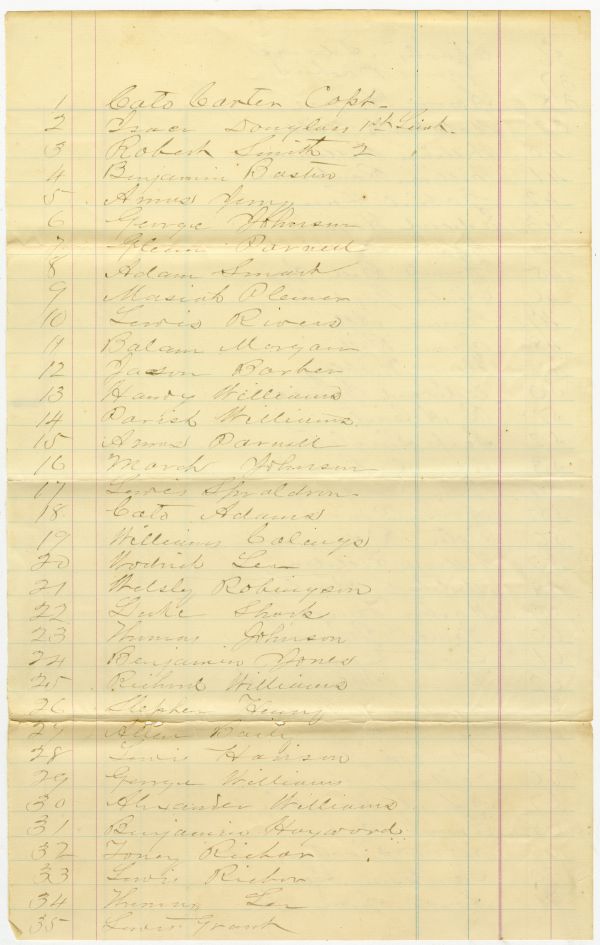 1 Cato Carter Capt.
2 Isaac Douglass 1st Lieut.
3 Robert Smith 2
4 Benjamin Bastin
5 Amus
6 George Johnson
7 Parnell
8 Adam Smart
9 Masiah
10 Lewis Rivers
11 Balam Morgan
12 Jason Barber
13 Handy Williams
14 Parish Williams
15 Amus Parnell
16 March Johnson
17 Lewis
18 Cato Adams
19 Williams
20 Lee
21 Welsly Robingson
22 Duke Shark
23 Thumas Johnson
24 Benjamin Jones
25 Richard Williams
26 Stephen Henry
27 Allen Baily
28 Lewis Harison
29 George Williams
30 Alexander Williams
31 Benjamin Hayword
32 Toney Richar
33 Lewis
34 Thumas Lee
35 Lewis Grant